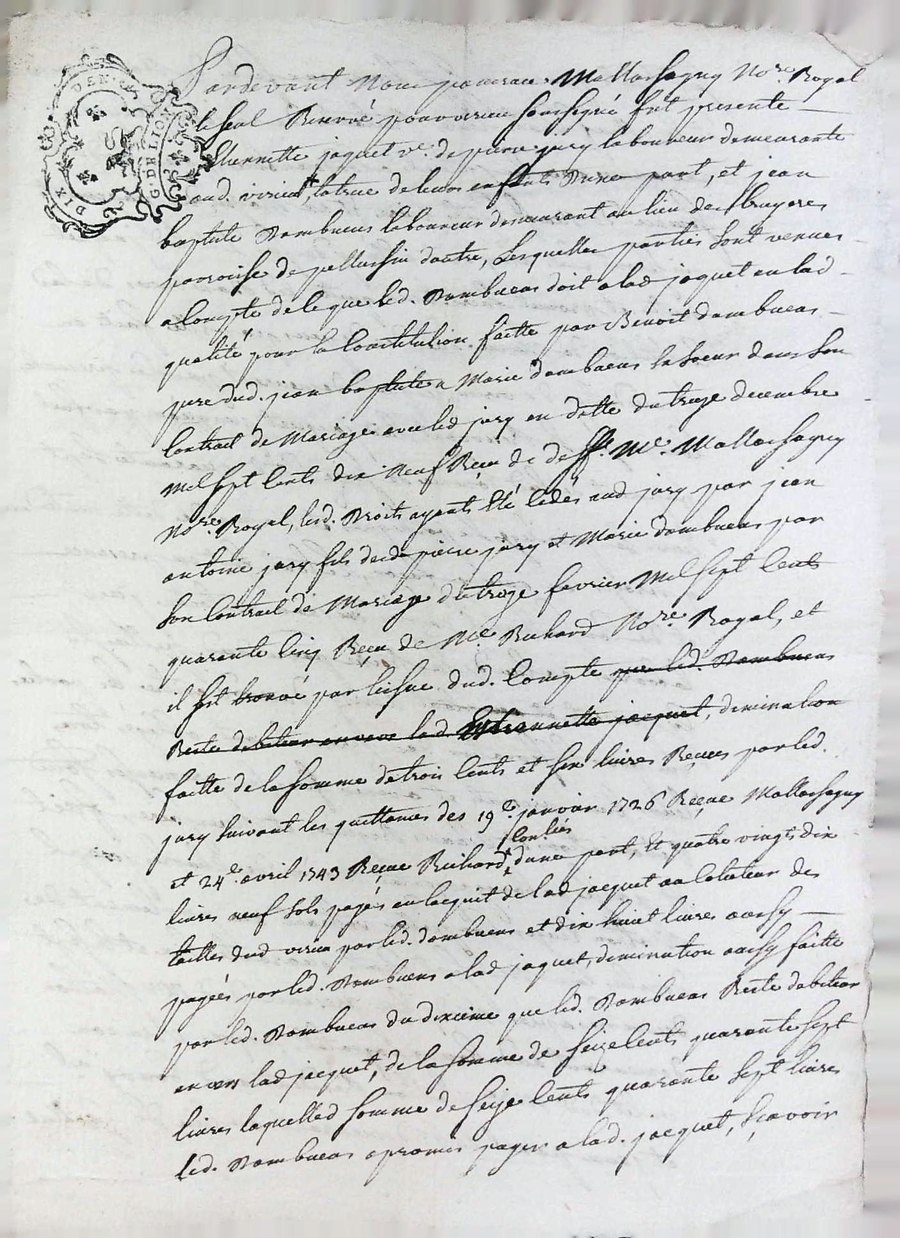 DIX DEN. G. DE LION
Pardevant Nous Mallassagny No.re Royal
le seul Reservé pour virieu soussigné fut presente
Etiennette jaquet v.e de pierre jury laboureur demeurante
aud. virieu, tutrice de leurs enfants d'une part, et jean
baptiste Dambuens laboureur demeurant au lieu de Bruyeres
parroisse de pellussin dautre, Lesquelles parties sont venues
a Compte de ce que led. Dambuens doit a lad jaquet en lad
qualité pour la Constitution faitte par Benoit dambuens
pere dud. jean baptiste a Marie dambuens sa soeur dans son
Contrat de Mariage avec led jury en datte du treze decembre
Mil sept Cents dix Neuf Reçu de deff. M.e Mallassagny
No.re Royal, lesd. Droits ayants Eté Cedés aud jury par jean
antoine jury fils dud pierre jury et Marie dambuens par
son Contrat de Mariage du treze fevrier Mil sept Cents
quarante Cinq Reçu de M.e Richard No.re Royal, et
il sest trouvé par lissue dud. Compte que led. Dambuens
Reste debiteur envers lad. Etiennette jacquet, diminution
faitte de la somme de trois Cents et six livres Reçues par led.
jury suivant les quittances des 19.e janvier 1726 Reçue Mallassagny
et 24.e avril 1743 Reçue Richard, d'une part, Et quatre vingts dix
livres neuf sols payés en lacquit de lad jacquet au Colecteur des
tailles dud virieu par led. dambuens et dix huict livres aussy
payées par led. Dambuens a lad jaquet, diminution aussy faitte
par led. Dambuens du dixieme que led. Dambuens Reste debiteur
envers lad jacquet, de la somme de seize Cents quarante sept
livres laquelled somme de seize Cents quarante sept livres
Led. Dambuens a promis payer a lad. jacquet, sçavoir